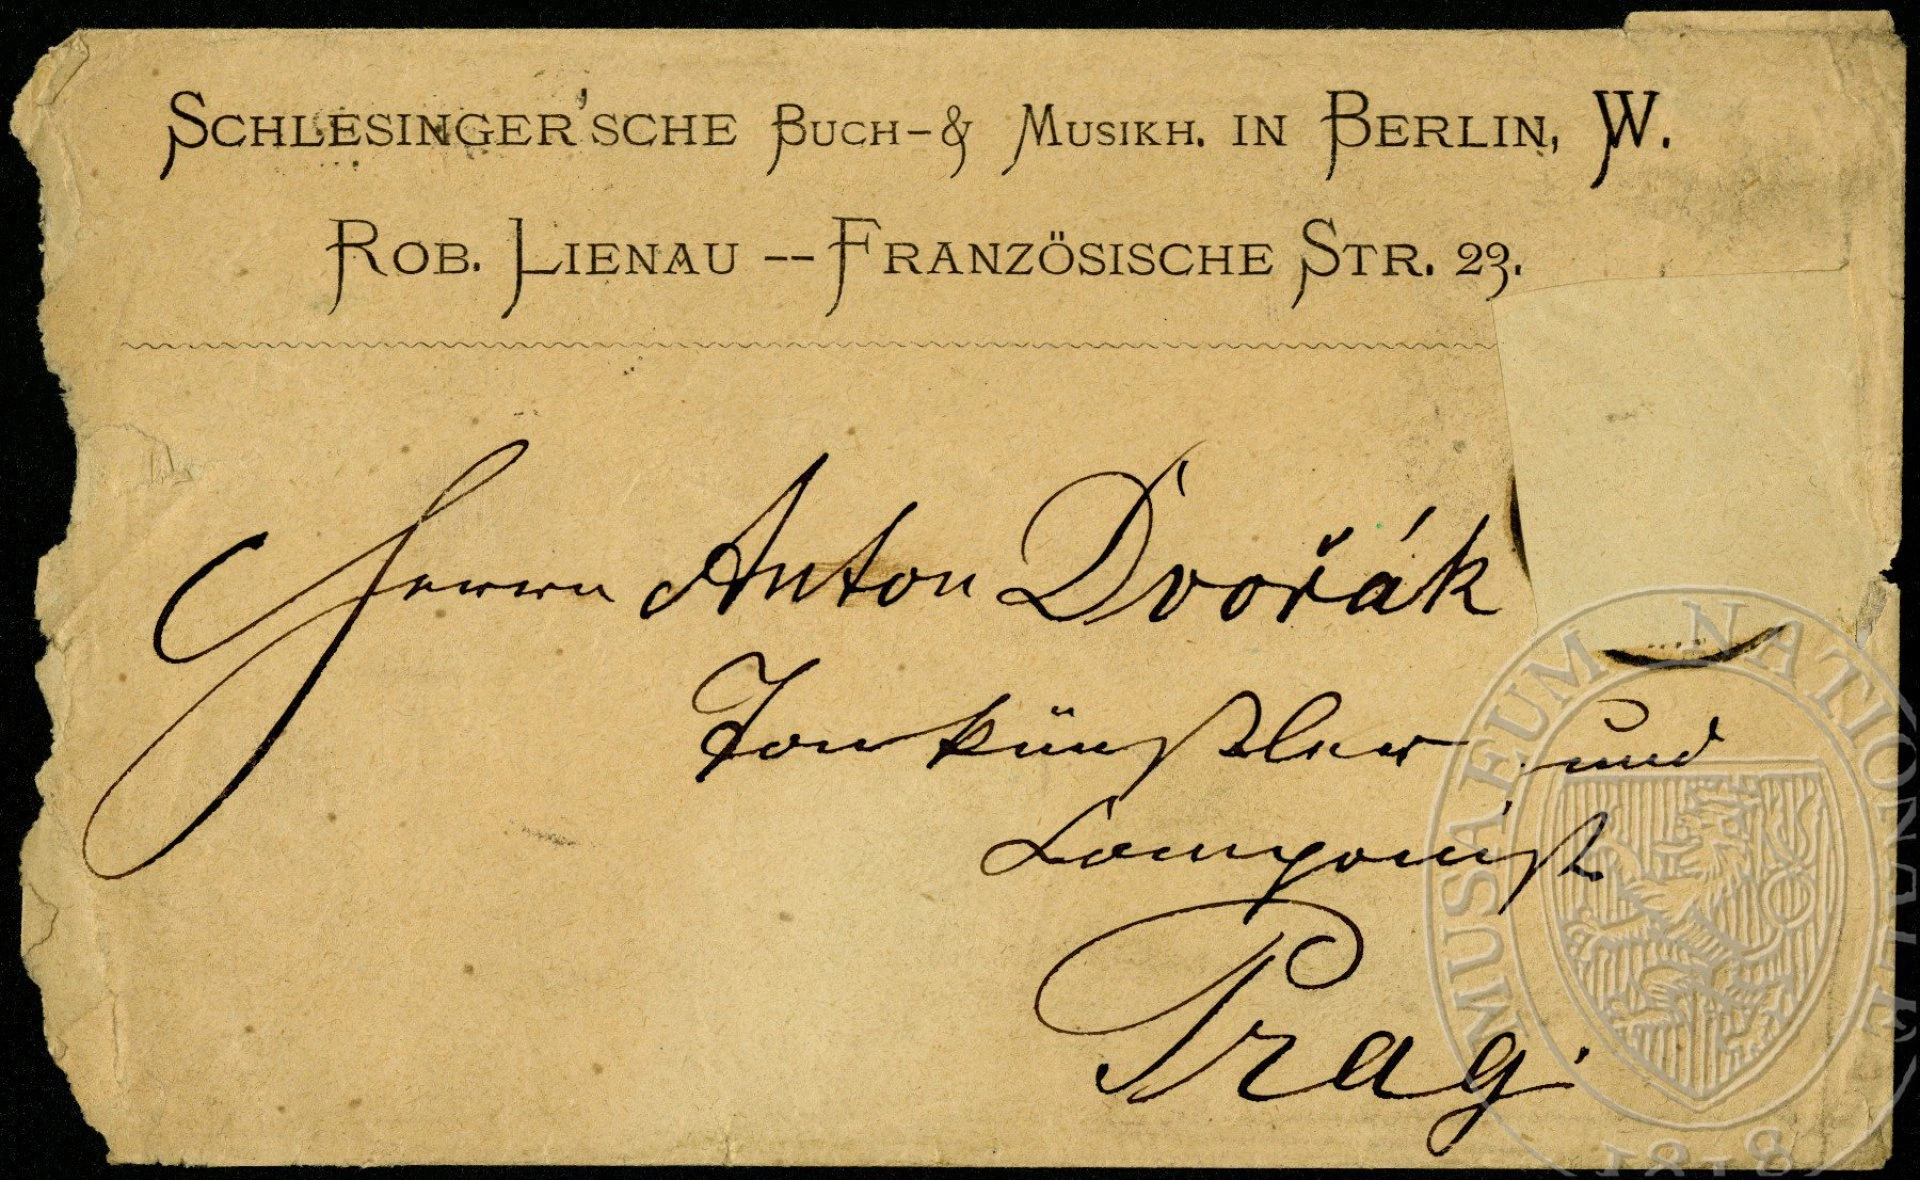 SCHLESINGER'SCHE BUCH-& MUSIKH. IN BERLIN, W.
ROB. LIENAU -- FRANZÖSISCHE STR. 23.
Herrn Anton Dvořák
Tonkünstler und
Componist
Prag.
MUSAEUM NATIONALE
1818